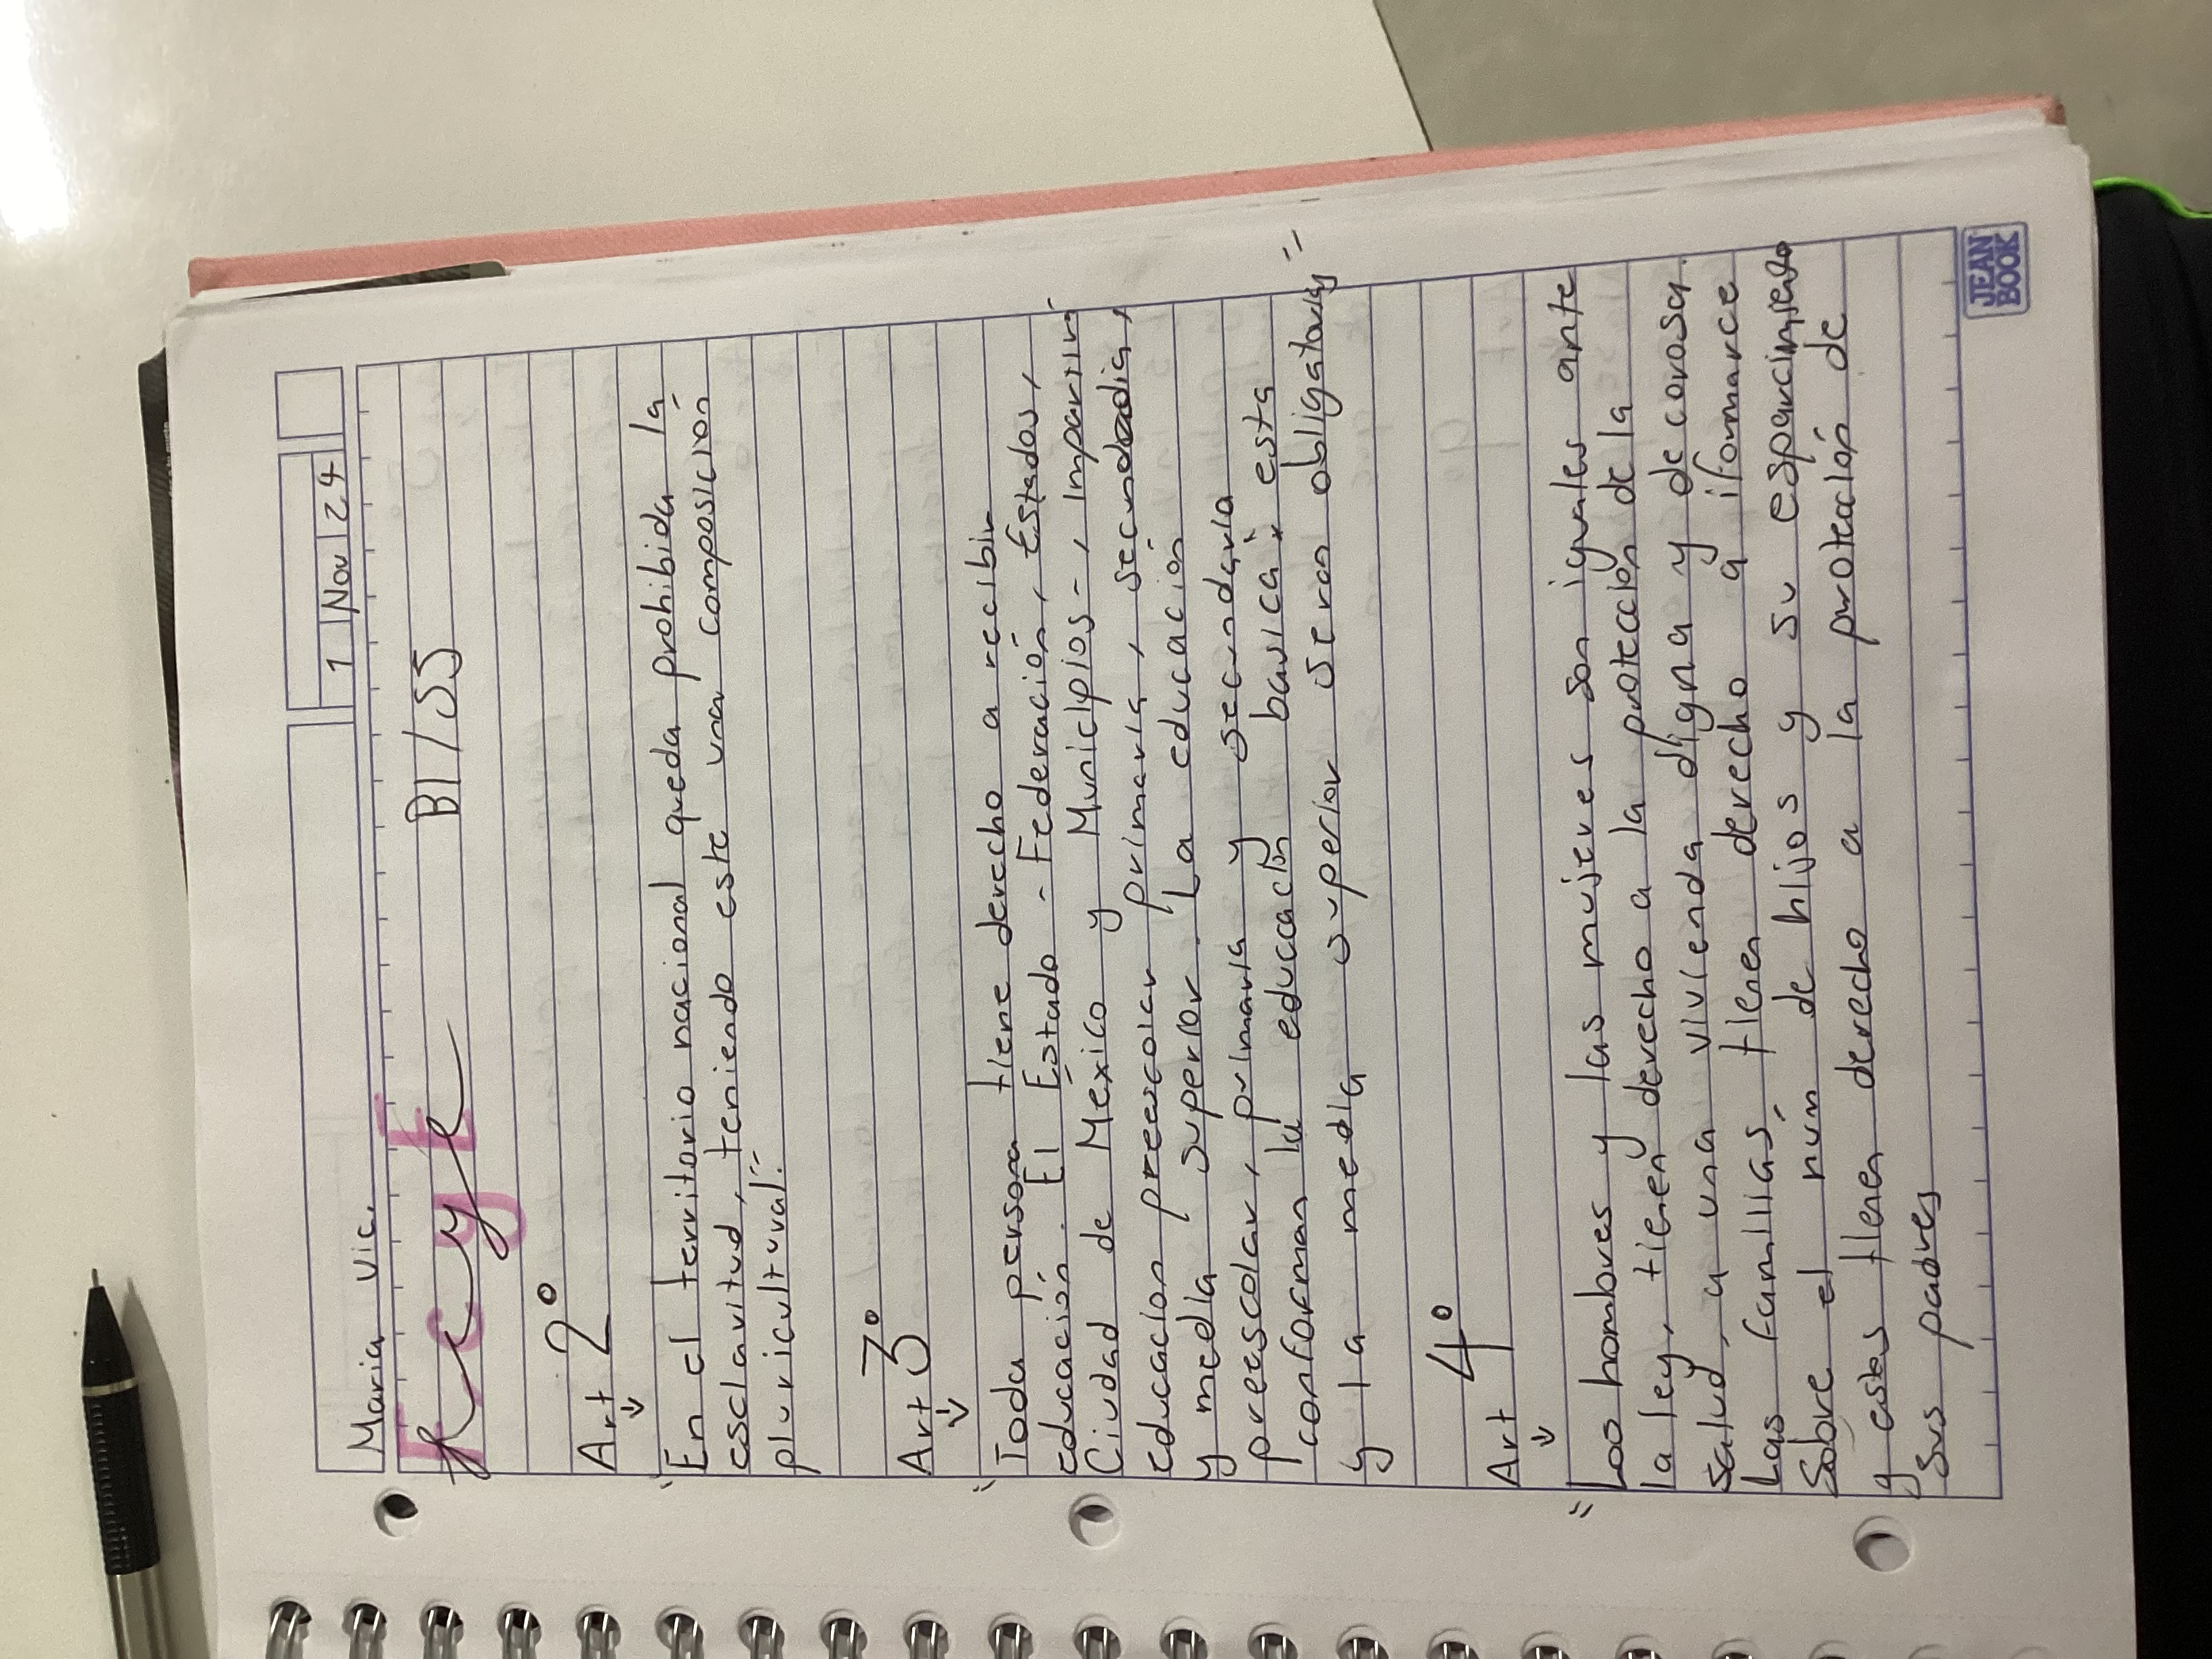 1 Nov 24
Maria Vic.
F c y E B1/S5
Art 2°
"En el territorio nacional queda prohibida la
esclavitud, teniendo este una composición
pluricultural."
Art 3°
"Toda persona tiene derecho a recibir
educación. El Estado - Federación, Estados,
Ciudad de Mexico y Municipios-, impartirá
educacion preescolar primaria, secundedia,
y media superior. La educación
preescolar, primaria y secundaria
conforman la educación basica; esta
y la media superior seran obligatorias"
Art 4°
"Los hombres y las mujeres son iguales ante
la ley, tienen derecho a la protección de la
salud, a una vivienda digna y decorosa.
Las familias, tienen derecho a iformarce
sobre el num de hijos y su esparcimiento
y estos tienen derecho a la proteación de
sus padres
JEAN
BOOK